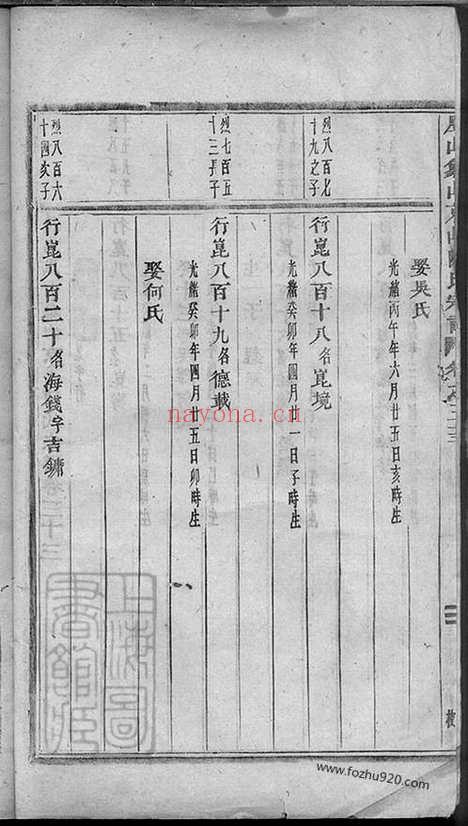 娶吳氏
光緒丙午年六月廿五日亥時生
烈八百七
十九之子
行崑八百十八名崑境
光緒癸卯年四月廿一日子時生
烈七百五
十三長子
行崑八百十九名德載
光緒癸卯年四月廿五日卯時生
娶何氏
烈八百六
十四亥子
行崑八百二十名海錢字吉鏞
上海圖
書館藏
nayona.cn
www.fozhu920.com